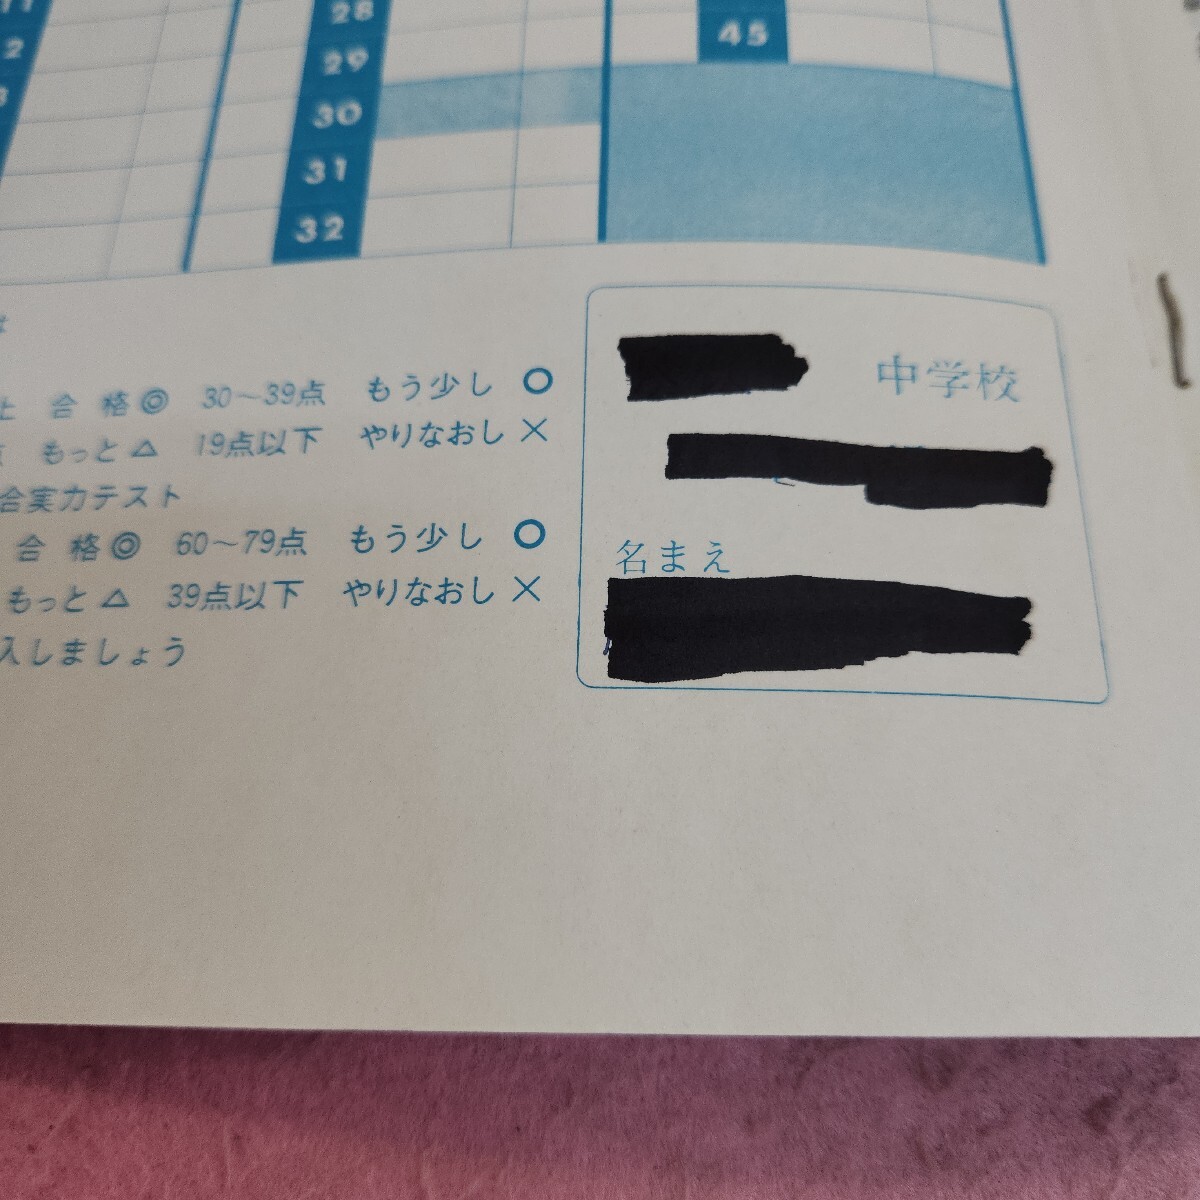 11
2
28
29
30
31
32
45
合格◎ 30〜39点 もう少し ○
もっと△ 19点以下 やりなおし ×
合実力テスト
合格◎ 60〜79点 もう少し ○
もっと△ 39点以下 やりなおし ×
入しましょう
中学校
名まえ